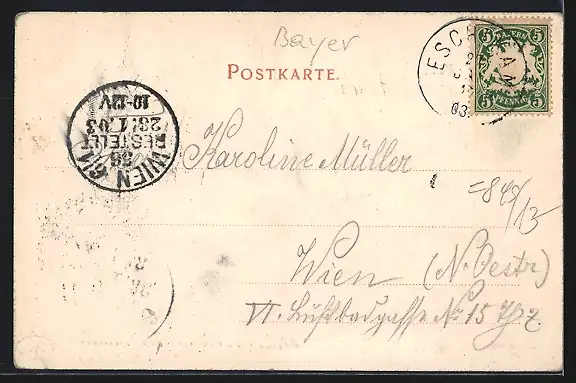 Bayer
POSTKARTE.
ESCH
03
5 BAYERN 5
5 PFENNIG 5
WIEN 6/1
88
BESTELLT
28/1 03
10-12V
Karoline Müller
=848/13
Wien (N. Oestr)
VI. Luftbadgasse No 15 Thz